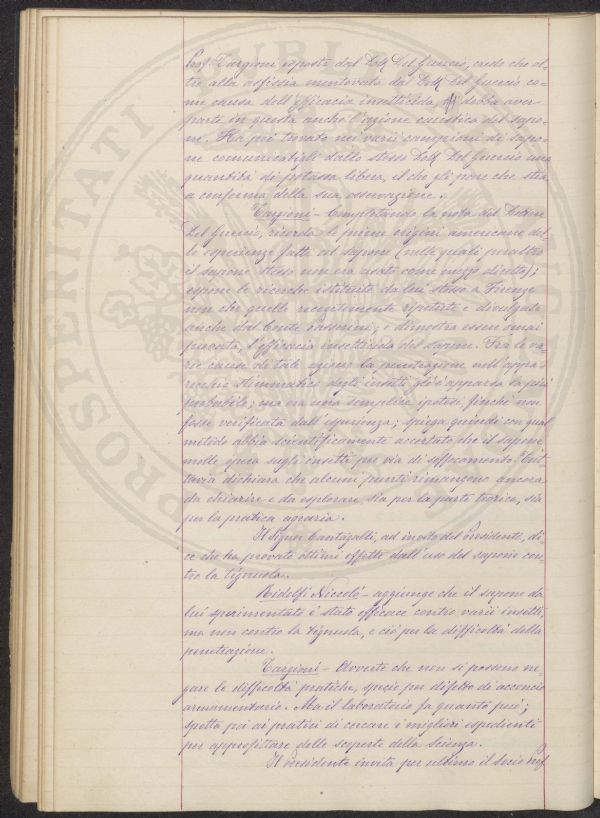 Prof. Targioni esposte dal Dott. Del Guercio, crede che ol-
tre alla asfissia mentovata dal Dott. Del Guercio co-
me causa dell'efficacia insetticida, debba aver
parte in questa anche l'azione caustica del sapo-
ne. Ha poi trovato nei varii campioni di sapo-
ne comunicatigli dallo stesso Dott. Del Guercio una
quantità di potassa libera, il che gli pare che stia
a conferma della sua osservazione.
Targioni - Completando la nota del Dottore
Del Guercio, ricorda le prime origini americane del-
le esperienze fatte col sapone (nelle quali peraltro
il sapone stesso non era usato come mezzo diretto);
espone le ricerche istituite da lui stesso a Firenze
non che quelle recentemente ripetute e divulgate
anche dal Conte Passerini; e dimostra essere omai
provata, l'efficacia insetticida del sapone. Fra le va-
rie cause di tale azione la penetrazione nell'appa-
recchio stimmatico degli insetti gli è apparsa la più
probabile; ma era una semplice ipotesi finchè non
fosse verificata dall'esperienza; spiega quindi con qual
metodo abbia scientificamente accertato che il sapone
molle opera sugli insetti per via di soffocamento. Tut-
tavia dichiara che alcuni punti rimangono ancora
da chiarire e da esplorare, sia per la parte teorica, sia
per la pratica agraria.
Il Signor Cantagalli, ad invito del Presidente, di-
ce che ha provato ottimi effetti dall'uso del sapone con-
tro la tignuola.
Ridolfi Niccolò - aggiunge che il sapone da
lui sperimentato è stato efficace contro varii insetti,
ma non contro la tignuola, e ciò per la difficoltà della
penetrazione.
Targioni - Avverte che non si possono ne-
gare le difficoltà pratiche, specie per difetto di acconcio
armamentario. Ma il laboratorio fa quanto può;
spetta poi ai pratici di cercare i migliori espedienti
per approfittare delle scoperte della scienza.
Il Presidente invita per ultimo il socio Prof.
PROSPERITATI PUBLICAE